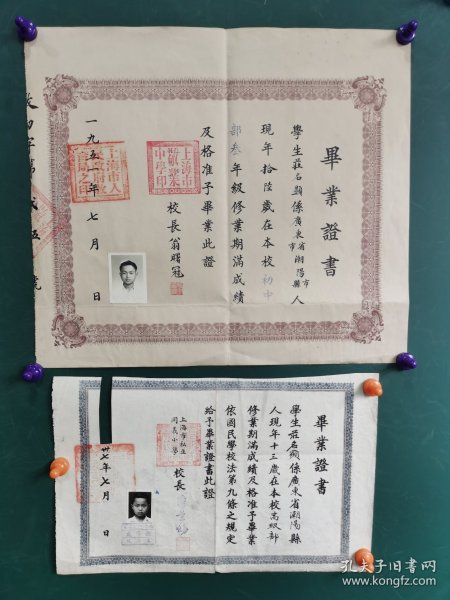 畢業證書
學生莊名顯係廣東省潮陽市縣人
現年拾陸歲在本校初中
部叁年級修業期滿成績
及格准予畢業此證
校長翁曙冠
一九五一年七月 日
畢業證書
學生莊名顯係廣東省潮陽縣
人現年十三歲在本校高級部
修業期滿成績及格准予畢業
依國民學校法第九條之規定
給予畢業證書此證
上海市私立
同義小學
校長
卅七年七月 日
孔夫子旧书网
www.kongfz.com